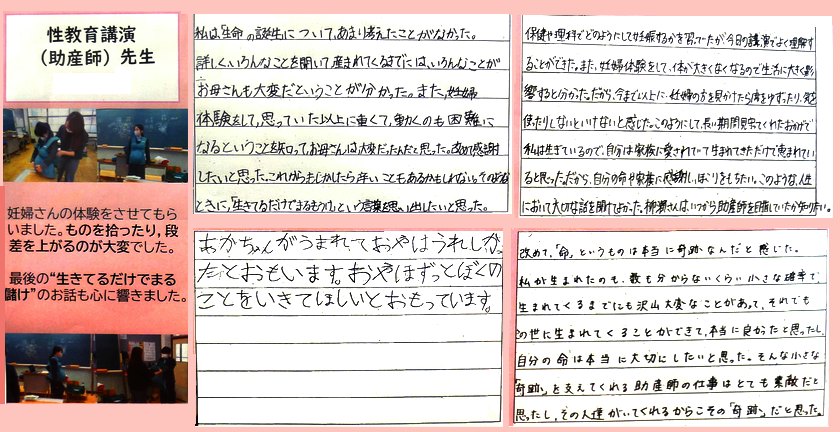 性教育講演
（助産師）先生
妊婦さんの体験をさせてもら
いました。ものを拾ったり，段
差を上がるのが大変でした。
最後の“生きてるだけでまる
儲け”のお話も心に響きました。
私は、「生命」の誕生について、あまり考えたことがなかった。
詳しくいろんなことを聞いて、産まれてくるまでには、いろんなことが
お母さんも大変だということが分かった。また、妊婦
体験をして、思っていた以上に重くて、動くのも困難に
なるということを知って、お母さんは大変だったんだと思った。改めて感謝
したいと思った。これからもしかしたら辛いこともあるかもしれない。その
ときに、「生きてるだけでまるもうけ」という言葉を思い出したいと思った。
あかちゃんがうまれておやはうれしかっ
たとおもいます。おやはずっとぼくの
ことをいきてほしいとおもっています。
保健や理科でどのようにして妊娠するかを習ってたが、今日の講演でよく理解す
ることができた。また、妊婦体験をして、体が大きくなくなるので生活に大きく影
響すると分かった。だから、今まで以上に、妊婦の方を見かけたら席をゆずったり、気を
使ったりしないといけないと感じた。このようにして、長い期間見守ってくれたおかげで
私は生きているので、自分は家族に愛されていて生まれてきただけで恵まれてい
ると思った。だから、自分の命や家族に感謝し、ほこりをもちたい。このような、人生
において大切な話を聞けてよかった。柳瀬さんは、いつから助産師を目指していたか知りたい。
改めて、「命」というものは本当に奇跡なんだと感じた。
私が生まれたのも、数も分からないくらい小さな確率で、
生まれてくるまでにも沢山大変なことがあって、それでも
この世に生まれてくることができて、本当に良かったと思ったし、
自分の命は本当に大切にしたいと思った。そんな小さな
「奇跡」を支えてくれる助産師の仕事はとても素敵だと
思ったし、その人達がいてくれるからこその「奇跡」だと思った。